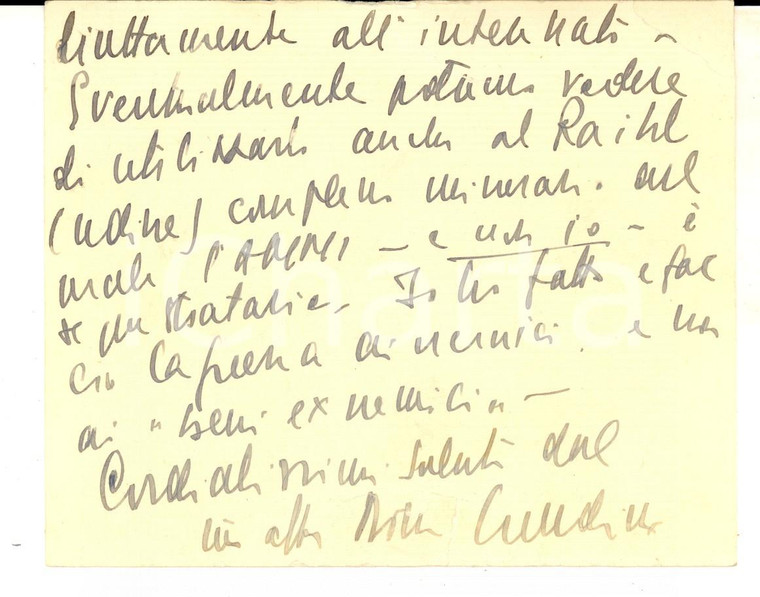 direttamente all'interessato -
Eventualmente potremo vedere
di utilizzarlo anche al Raibl
(Udine) complesso minerario. del
quale l'AMMI - e non io - è
sequestrataria. Io ho fatto e fac
cio la guerra ai nemici e non
ai "beni ex nemici" -
Cordialissimi saluti dal
tuo aff.